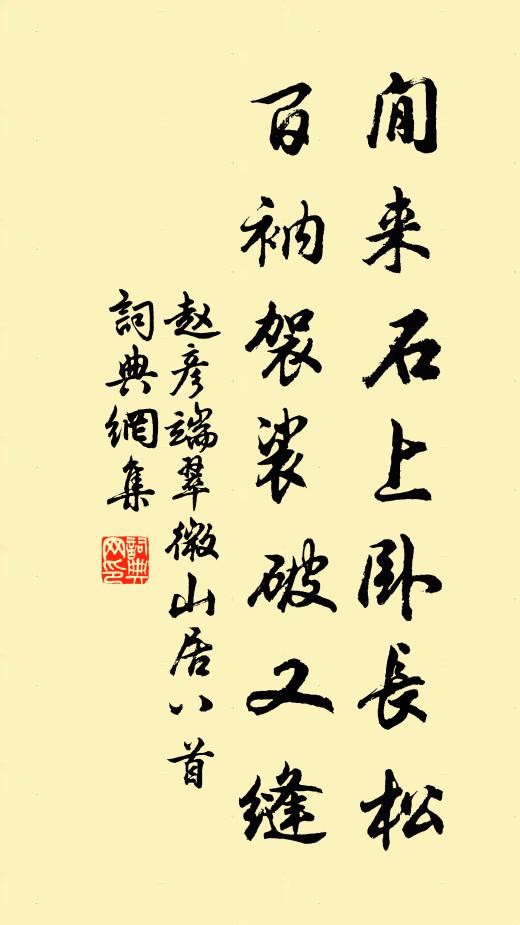 閒来石上卧長松
百衲袈裟破又縫
赵彦端翠微山居八首
詞典網集
詞典网印